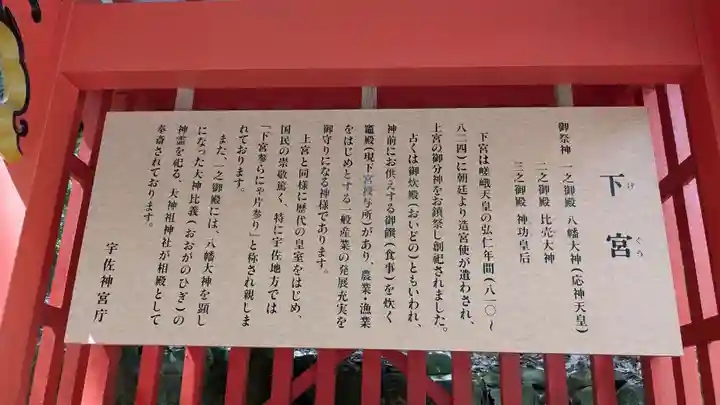 下宮
げくう
御祭神 一之御殿 八幡大神(応神天皇)
二之御殿 比売大神
三之御殿 神功皇后
下宮は嵯峨天皇の弘仁年間(八一〇〜
八二四)に朝廷より造宮使が遣わされ、
上宮の御分神をお鎮祭し創祀されました。
古くは御炊殿(おいどの)ともいわれ、
神前にお供えする御饌(食事)を炊く
竈殿(現下宮授与所)があり、農業・漁業
をはじめとする一般産業の発展充実を
御守りになる神様であります。
上宮と同様に歴代の皇室をはじめ、
国民の崇敬篤く、特に宇佐地方では
「下宮参らにゃ片参り」と称され親しま
れております。
また、一之御殿には、八幡大神を顕し
になった大神比義(おおがのひぎ)の
神霊を祀る、大神祖神社が相殿として
奉斎されております。
宇佐神宮庁